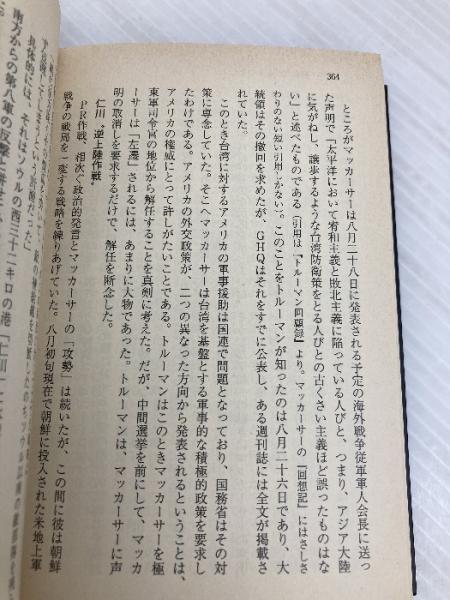 364
ところがマッカーサーは八月二十八日に発表される予定の海外戦争従軍軍人会長に送っ
た声明で「太平洋において宥和主義と敗北主義に陥っている人びと、つまり、アジア大陸
に気がねし、譲歩するような台湾防衛策をとる人びとの古くさい主義ほど誤ったものはな
い」と述べたものである（引用は『トルーマン回顧録』より。マッカーサーの『回想記』にはさしさ
わりのない短い引用しかない）。このことをトルーマンが知ったのは八月二十六日であり、大
統領はその撤回を求めたが、GHQはそれをすでに公表し、ある週刊誌には全文が掲載さ
れていた。
このとき台湾に対するアメリカの軍事援助は国連で問題となっており、国務省はその対
策に専念していた。そこへマッカーサーは台湾を基盤とする軍事的な積極的政策を要求し
たわけである。アメリカの外交政策が、二つの異なった方向から発表されるということは、
アメリカの権威にとって許しがたいことである。トルーマンはこのときマッカーサーを極
東軍司令官の地位から解任することを真剣に考えた。だが、中間選挙を前にして、マッカ
ーサーは「左遷」されるには、あまりに大物であった。トルーマンは、マッカーサーに声
明の取消しを要求するだけで、解任を断念した。
仁川〝逆上陸作戦〟
PR作戦、相次ぐ政治的発言とマッカーサーの「攻勢」は続いたが、この間に彼は朝鮮
戦争の戦局を一変する戦略を練りあげていた。八月初旬現在で朝鮮に投入された米地上軍
具体的には、それはソウルの西三十二キロの港「仁川」
南方からの第八軍の反撃